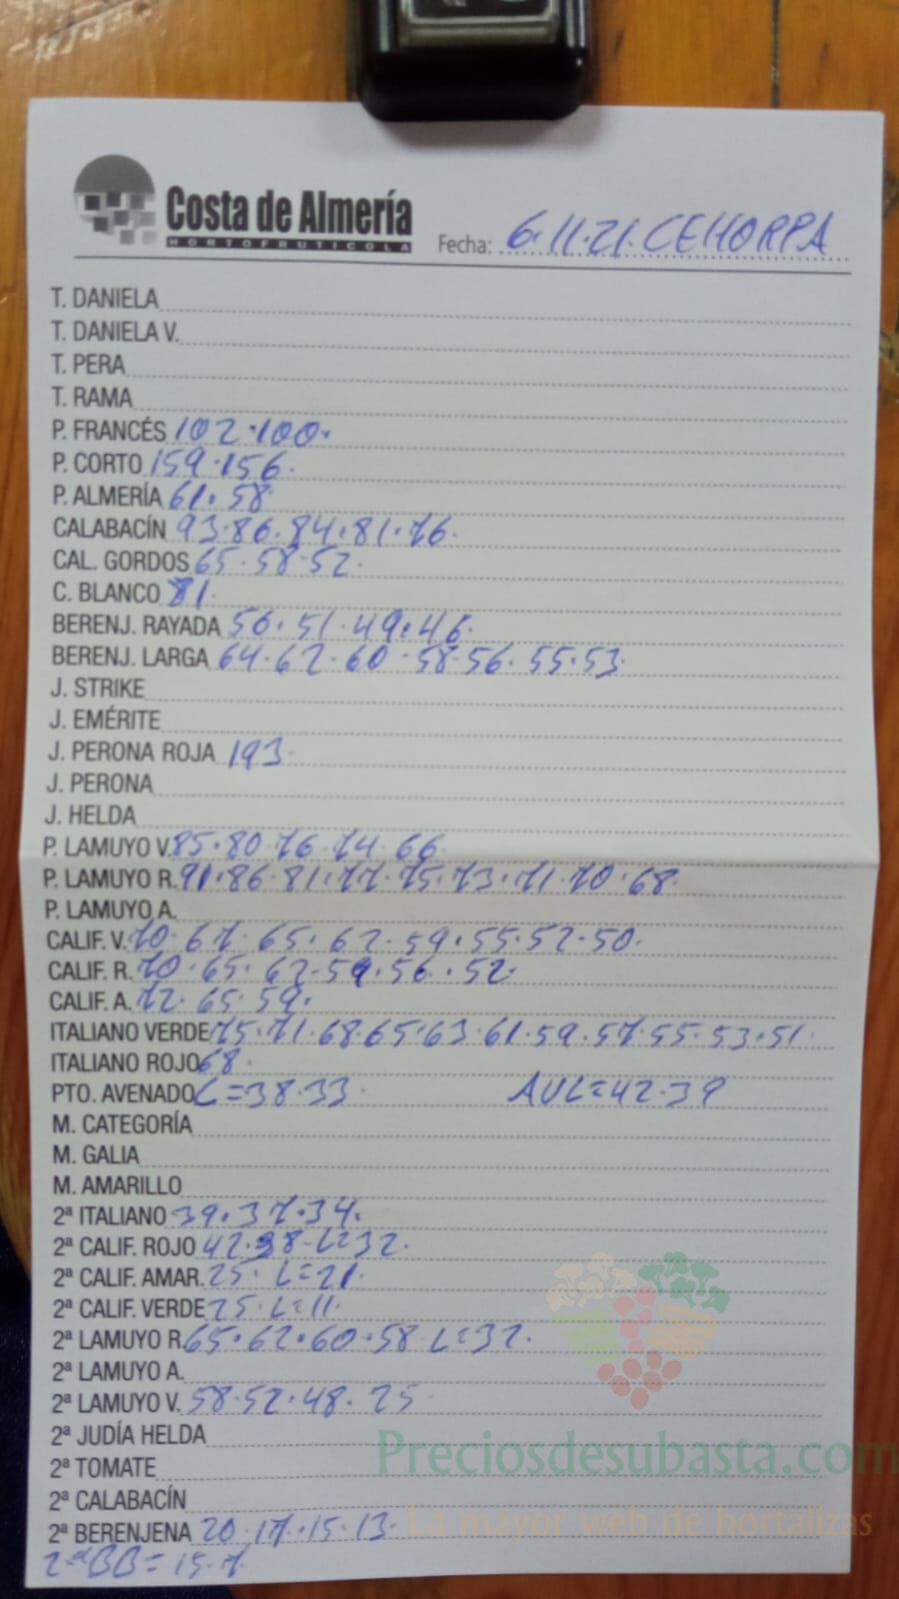 Costa de Almería
HORTOFRUTICOLA
Fecha: 6.11.21. CEHORPA
T. DANIELA
T. DANIELA V.
T. PERA
T. RAMA
P. FRANCÉS 102.100.
P. CORTO 159.156.
P. ALMERÍA 61.58
CALABACÍN 93.86.84.81.76.
CAL. GORDOS 65.58-52.
C. BLANCO 81.
BERENJ. RAYADA 56.51.49.46.
BERENJ. LARGA 64.62.60.58.56.55.53.
J. STRIKE
J. EMÉRITE
J. PERONA ROJA 193.
J. PERONA
J. HELDA
P. LAMUYO V. 85.80.76.74.66.
P. LAMUYO R. 91.86.81.77.75.73.71.70.68.
P. LAMUYO A.
CALIF. V. 70.67.65.62.59.55.52.50.
CALIF. R. 70.65.62.59.56.52.
CALIF. A. 72.65.59.
ITALIANO VERDE 75.71.68.65.63.61.59.57.55.53.51.
ITALIANO ROJO 68.
PTO. AVENADO L=38.33. AVL=42.39
M. CATEGORÍA
M. GALIA
M. AMARILLO
2ª ITALIANO 39.37.34.
2ª CALIF. ROJO 42.38-L=32.
2ª CALIF. AMAR. 25. L=21.
2ª CALIF. VERDE 25.L=11.
2ª LAMUYO R. 65.62.60.58 L=32.
2ª LAMUYO A.
2ª LAMUYO V. 58.52.48.25
2ª JUDÍA HELDA
2ª TOMATE
2ª CALABACÍN
2ª BERENJENA 20.17.15.13.
2ªBB=15.7.
Preciosdesubasta.com
La mayor web de hortalizas